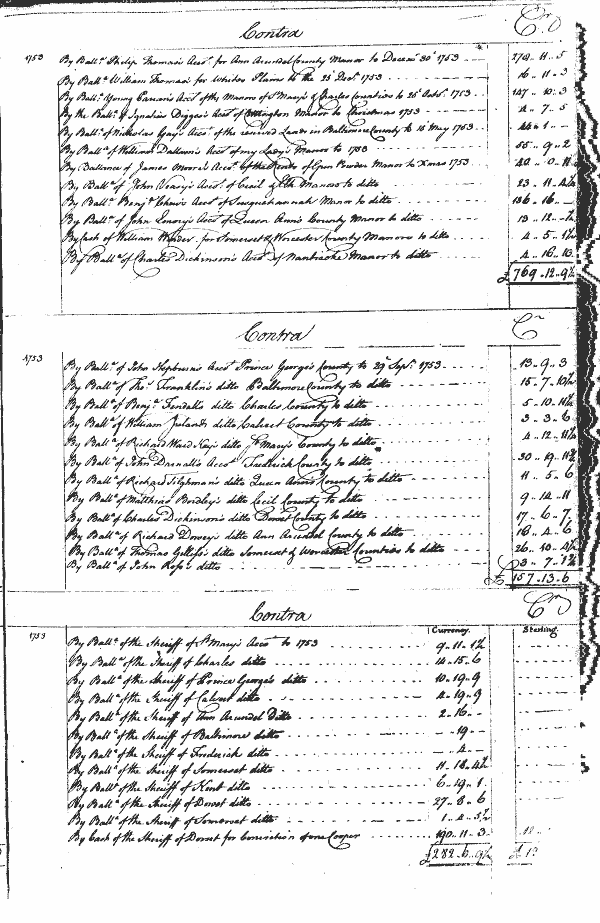 Contra Cr.
1753 By Ball.ce Philip Thomas's Acco.t for Ann Arundel County Manor to Decem.r 30.th 1753 279 .. 11 .. 5
By Ball.ce William Thomas's for Whites Plains to the 25 Dec.r 1753 16 .. 11 .. 3
By Ball.ce Young Parran's Acco.t of the Manors of S.t Mary's & Charles Counties to 25 Octob.r 1753 147 .. 10 .. 3
By the Ball.ce of Ignatius Digges's Acco.t of Manor to Christmas 1753 4 .. 7 .. 5
By Ball.ce of Nicholas Gay's Acco.t of the reserved Lands in Baltimore County to 16 May 1753 44 .. 1 .. -
By Ball.ce of William Dallam's Acco.t of my Lady's Manor to 1753 55 .. 9 .. 2
By Ballance of James Moore's Acco.t of the Rents of Gun Powder Manor to Xmas 1753 40 .. 0 .. 11
By Ball.ce of John Veazy's Acco.t of Cecil & Elk Manors to ditto 23 .. 11 ..
By Ball.ce Benj.n Chew's Acco.t of Susquehannah Manor to ditto 136 .. 16 .. -
By Ball.ce of John Emory's Acco.t of Queen Ann's County Manor to ditto 13 .. 12 .. -
By Cash of William Winder for Somerset & Worcester County Manors to ditto 4 .. 5 ..
By Ball.ce of Charles Dickinson's Acco.t of Nanticoke Manor to ditto 4 .. 16 .. 10
£ 769 .. 12 .. 9½
Contra Cr.
1753 By Ball.ce of John Hepburn's Acco.t Prince George's County to 29 Sep.r 1753 13 .. 9 .. 3
By Ball.ce of Tho.s Franklin's ditto Baltimore County to ditto 15 .. 7 .. 10½
By Ball.ce of Benj.n Fendall's ditto Charles County to ditto 5 .. 10 .. 11½
By Ball.ce of William Ireland's ditto Calvert County to ditto 3 .. 3 .. 6
By Ball.ce of Richard Ward Key's ditto S.t Mary's County to ditto 4 .. 12 .. 11½
By Ball.ce of John Darnall's Acco.t Frederick County to ditto 30 .. 19 .. 11½
By Ball.ce of Richard Tilghman's ditto Queen Ann's County to ditto 11 .. 5 .. 6
By Ball.ce of Matthias Bordley's ditto Cecil County to ditto 9 .. 14 .. 11
By Ball.ce of Charles Dickinson's ditto Dorset County to ditto 17 .. 6 .. 7
By Ball.ce of Richard Dorsey's ditto Ann Arundel County to ditto 18 .. 4 .. 6
By Ball.ce of Thomas Gillis's ditto Somerset & Worcester Counties to ditto 26 .. 10 ..
By Ball.ce of John Ross's ditto 3 .. 7 ..
£ 157 .. 13 .. 6
Contra Cr.
Currency. Sterling.
1753 By Ball.ce of the Sheriff of S.t Mary's Acco.t to 1753 9 .. 11 .. 1½
By Ball.ce of the Sheriff of Charles ditto 14 .. 15 .. 6
By Ball.ce of the Sheriff of Prince George's ditto 10 .. 19 .. 9
By Ball.ce of the Sheriff of Calvert ditto 4 .. 19 .. 9
By Ball.ce of the Sheriff of Ann Arundel Ditto 2 .. 16 .. -
By Ball.ce of the Sheriff of Baltimore ditto - .. 19 .. -
By Ball.ce of the Sheriff of Frederick ditto - .. 4 .. -
By Ball.ce of the Sheriff of Somerset ditto 11 .. 18 .. 4½
By Ball.ce of the Sheriff of Kent ditto 6 .. 19 .. 1
By Ball.ce of the Sheriff of Dorset ditto 27 .. 8 .. 6
By Ball.ce of the Sheriff of Somerset ditto 1 .. 4 .. 5½
By Cash of the Sheriff of Dorset for Conviction of one Cooper 190 .. 11 .. 3 12 ..
£ 282 .. 6 .. 9½ £ 12